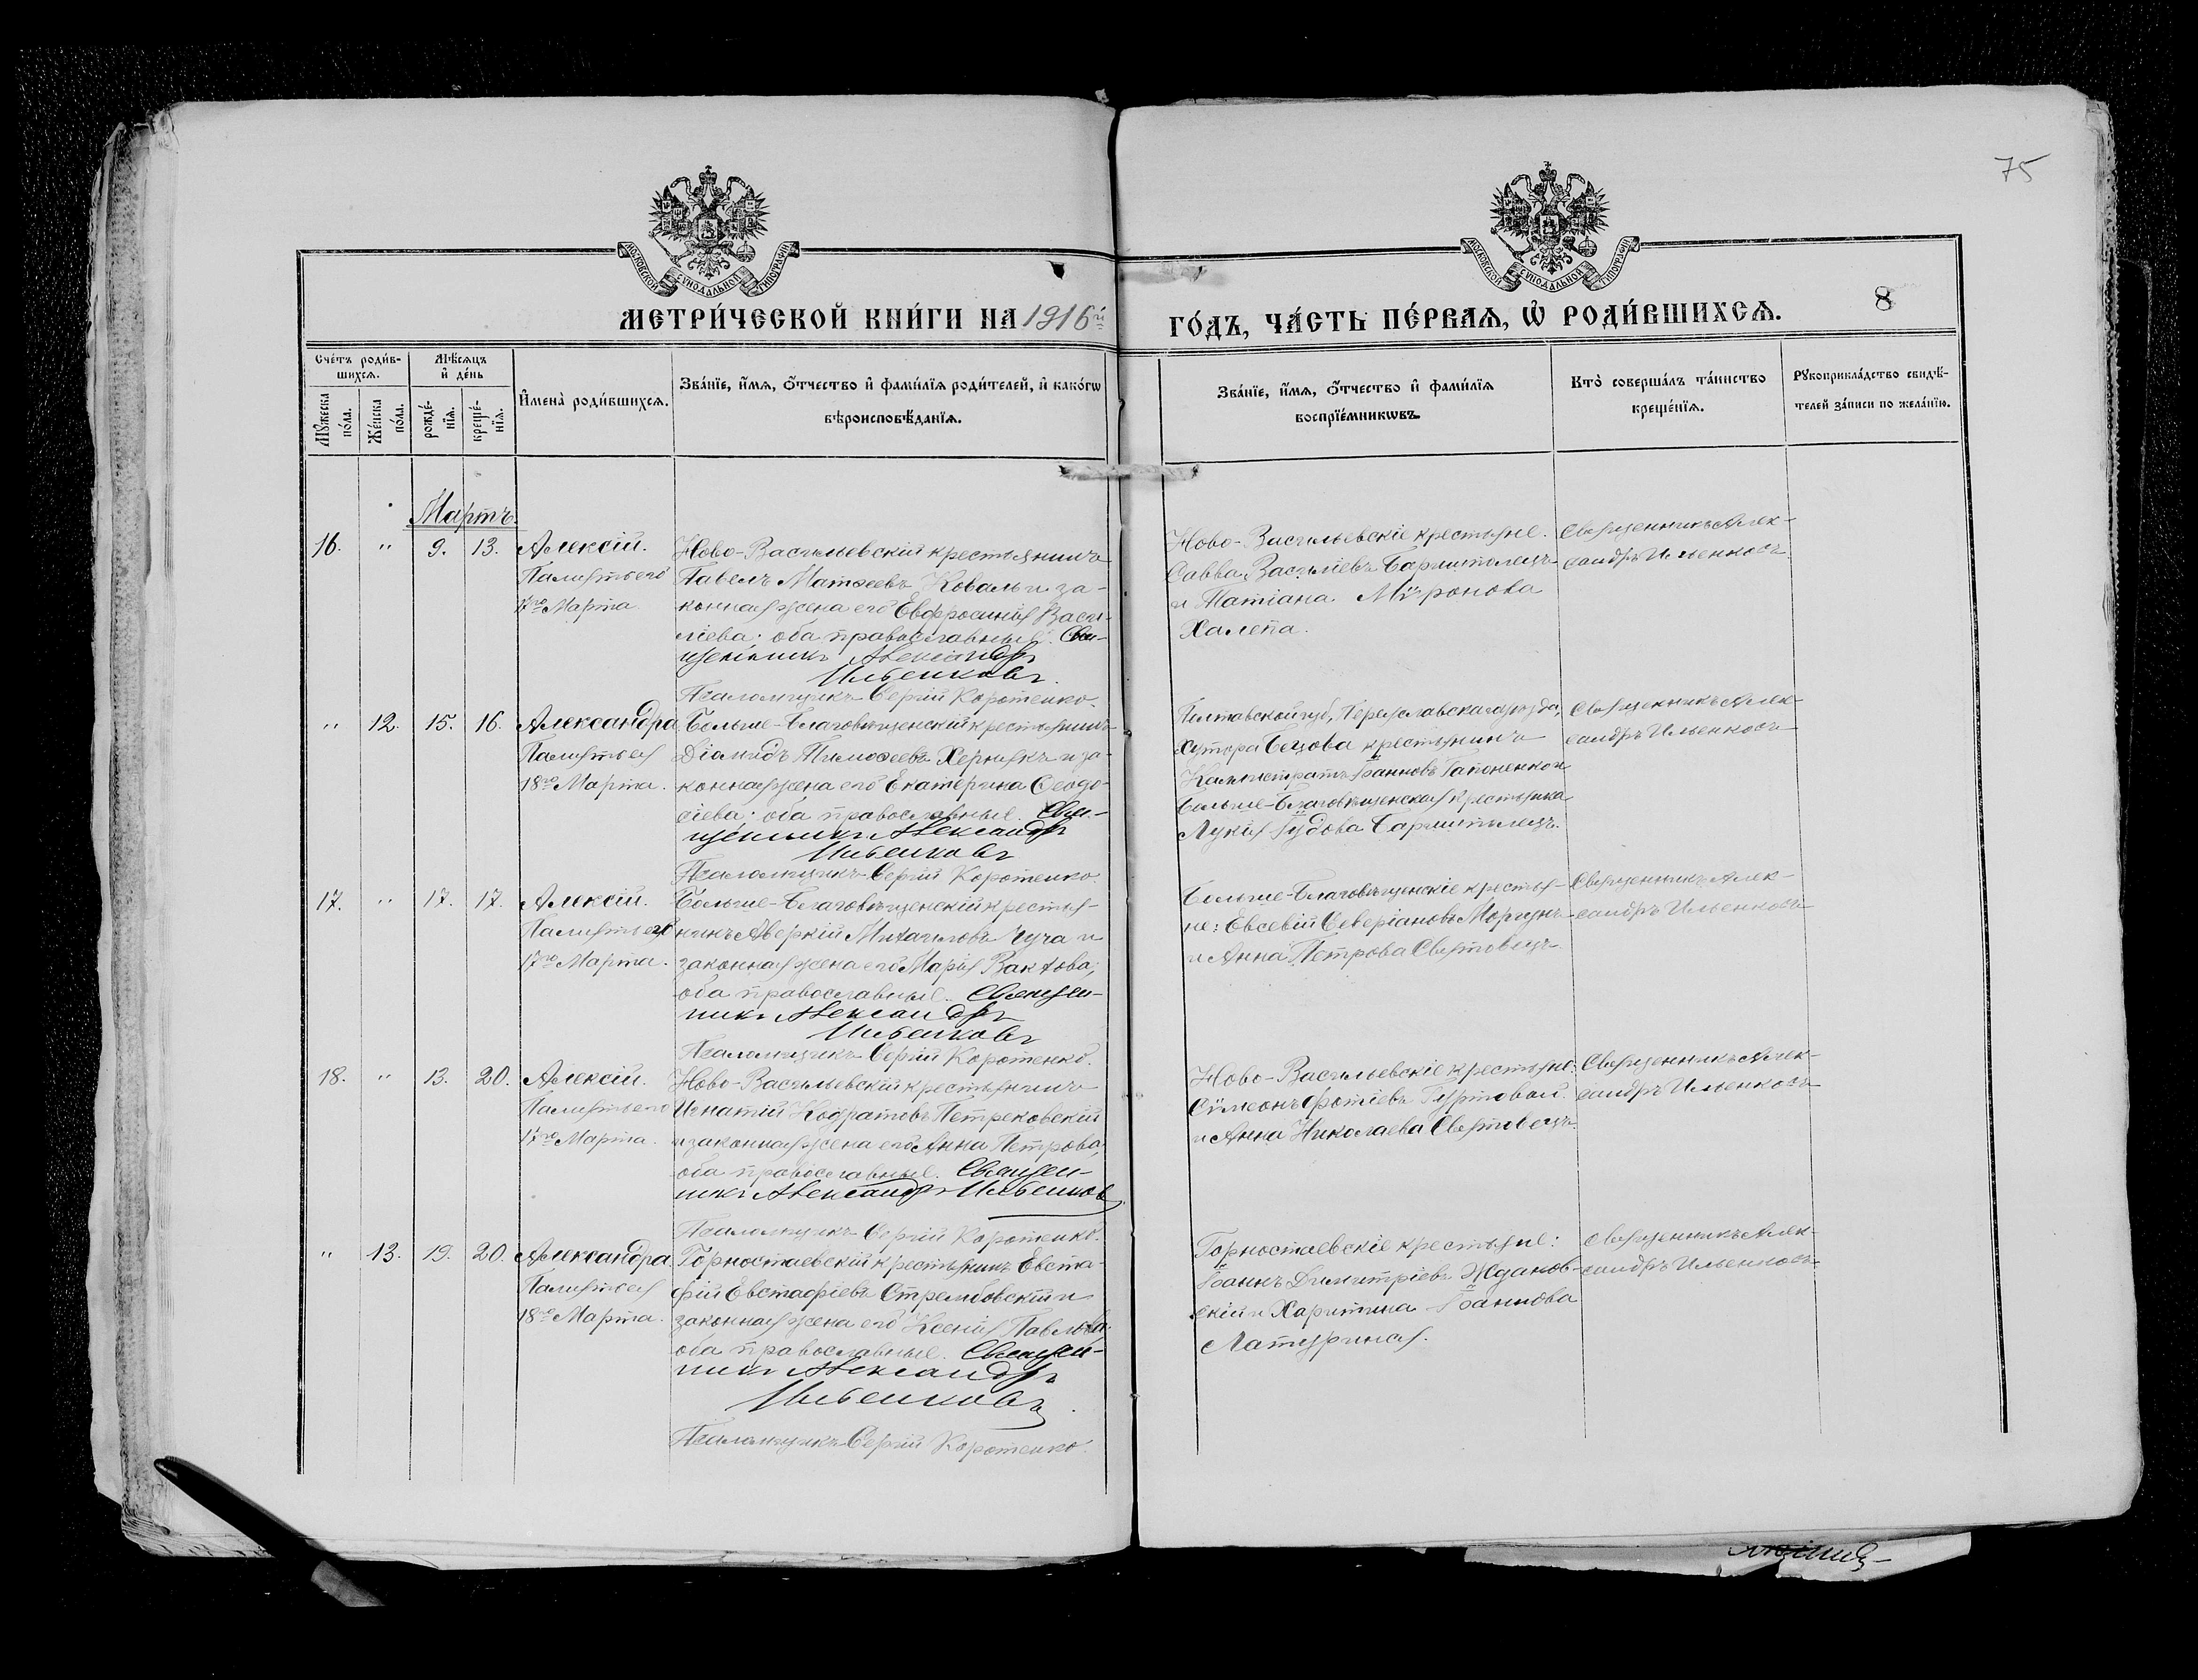 75
МОСКОВСКОЙ СѴНОДАЛЬНОЙ ТИПОГРАФІИ
МОСКОВСКОЙ СѴНОДАЛЬНОЙ ТИПОГРАФІИ
МЕТРИ́ЧЕСКОЙ КНИ́ГИ НА 1916й ГО́ДЪ, ЧА́СТЬ ПЕ́РВАѦ, Ѡ҆ РОДИ́ВШИХСѦ.
8
Сче́тъ роди́в-
шихсѧ.
Мꙋ́жеска по́ла.
Же́нска по́ла.
Мѣ́сѧцъ
и҆ де́нь
рожде́-
нїѧ.
креще́-
нїѧ.
И҆мена̀ роди́вшихсѧ.
Зва́нїе, и҆́мѧ, ѻ҆́тчество и҆ фами́лїѧ роди́телей, и҆ како́гѡ
вѣроисповѣ́данїѧ.
Зва́нїе, и҆́мѧ, ѻ҆́тчество и҆ фами́лїѧ
воспрїе́мникѡвъ.
Кто̀ соверша́лъ та́инство
креще́нїѧ.
Рꙋкоприкла́дство свидѣ́-
телей за́писи по жела́нїю.
Мартъ.
16. " 9. 13. Алексій.
Память его
17го Марта
Ново-Васильевскій крестьянинъ
Павелъ Матѳеевъ Коваль и за-
конная жена его Евфросинія Васи-
ліева; оба православные. Свя-
щенникъ Александръ
Ильенковъ.
Псаломщикъ Сергій Коротенко.
Ново-Васильевскіе крестьяне:
Савва Василіевъ Барышполецъ
и Татіана Мѵронова
Халепа.
Священникъ Алек-
сандръ Ильенковъ
" 12. 15. 16. Александра
Память ея
18го Марта.
Больше-Благовѣщенскій крестьянинъ
Діамидъ Тимоѳеевъ Хернякъ и за-
конная жена его Екатерина Ѳеодо-
сіева; оба православные. Свя-
щенникъ Александръ
Ильенковъ
Псаломщикъ Сергій Коротенко.
Полтавской губ, Переяславскаго уѣзда,
Хутора Бецова крестьянинъ
Каллистратъ Іоанновъ Гапоненко и
Больше-Благовѣщенская крестьянка
Лукія Іудова Барышполецъ.
Священникъ Алек-
сандръ Ильенковъ
17. " 17. 17. Алексій.
Память его
17го Марта.
Больше-Благовѣщенскій крестья-
нинъ Аверкій Михаиловъ Чуча и
законная жена его Марія Вакхова;
оба православные. Священ-
никъ Александръ
Ильенковъ
Псаломщикъ Сергій Коротенко.
Больше-Благовѣщенскіе крестья-
не: Евсевій Северіановъ Моргунъ
и Анна Петрова Свѣтовецъ
Священникъ Алек-
сандръ Ильенковъ
18. " 13. 20. Алексій.
Память его
17го Марта.
Ново-Васильевскій крестьянинъ
Игнатій Кодратовъ Петрековскій
и законная жена его Анна Петрова;
оба православные. Священ-
никъ Александръ Ильенковъ
Псаломщикъ Сергій Коротенко.
Ново-Васильевскіе крестьяне:
Сѵмеонъ Фотіевъ Гуртовой
и Анна Николаева Свѣтовецъ.
Священникъ Алек-
сандръ Ильенковъ
" 13. 19. 20. Александра
Память ея
18го Марта.
Горностаевскій крестьянинъ Евста-
фій Евстафіевъ Стрембовскій и
законная жена его Ксенія Павлова;
оба православные. Священ-
никъ Александръ
Ильенковъ.
Псаломщикъ Сергій Коротенко.
Горностаевскіе крестьяне:
Іоаннъ Димитріевъ Жданов-
скій и Харитина Іоаннова
Латурина.
Священникъ Алек-
сандръ Ильенковъ